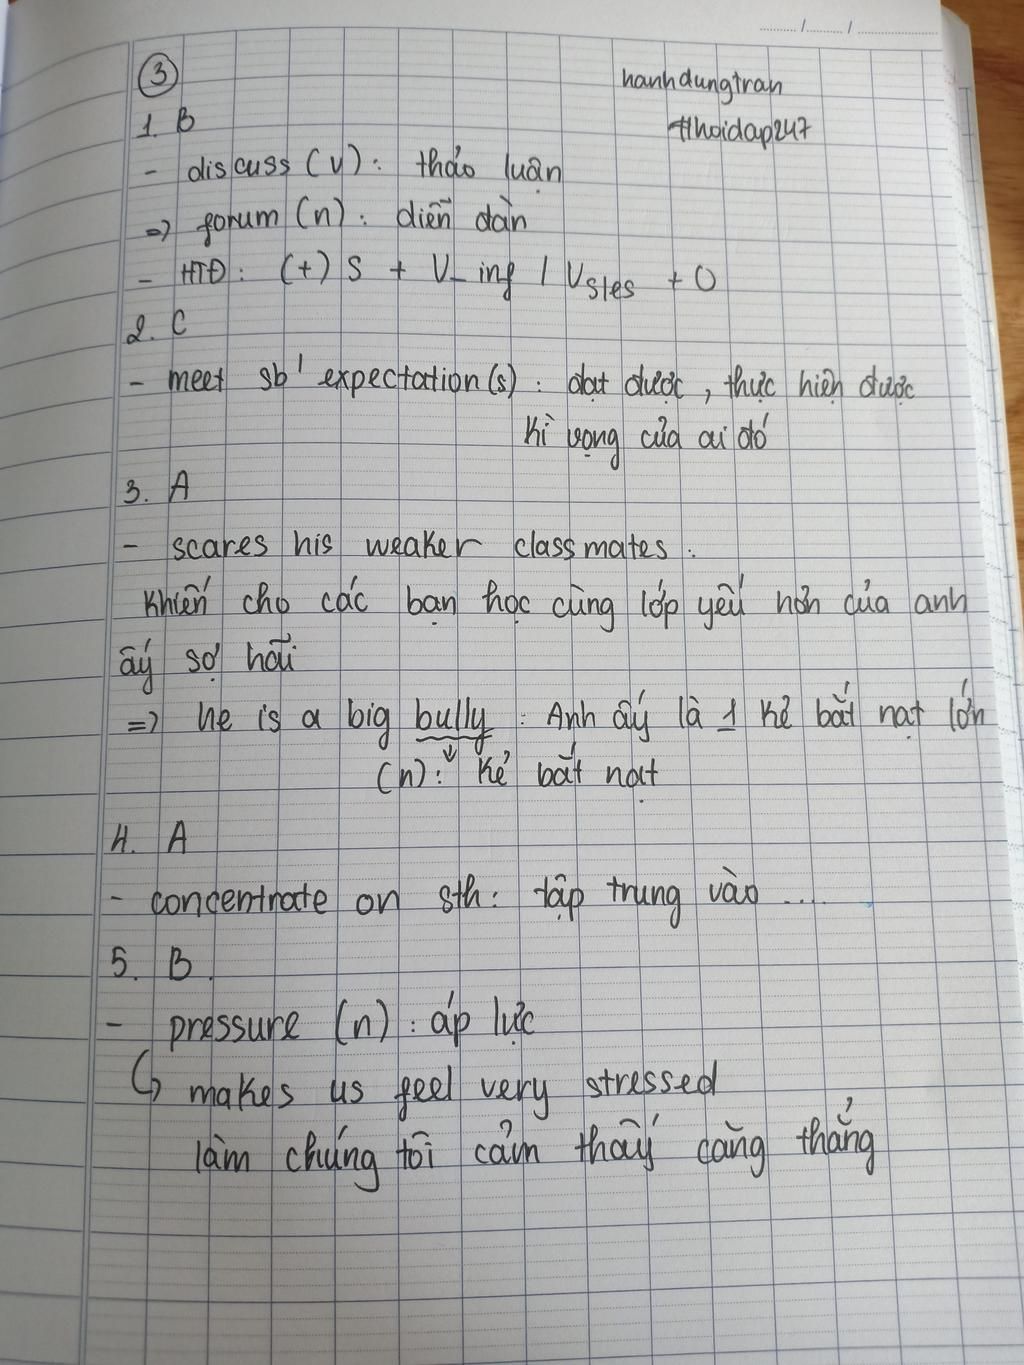 ...../...../...............
③
hanhdungtran
1. B
#hoidap247
- discuss (v): thảo luận
=> forum (n): diễn dàn
- HTĐ: (+) S + V_ing / Vs/es + O
2. C
- meet sb' expectation(s): đạt được, thực hiện được
kì vọng của ai đó
3. A
- scares his weaker classmates.
Khiến cho các bạn học cùng lớp yếu hơn của anh
ấy sợ hãi
=> he is a big bully: Anh ấy là 1 kẻ bắt nạt lớn
(n): kẻ bắt nạt
4. A
- concentrate on sth: tập trung vào ....
5. B.
- pressure (n): áp lực
↳ makes us feel very stressed
làm chúng tôi cảm thấy căng thẳng